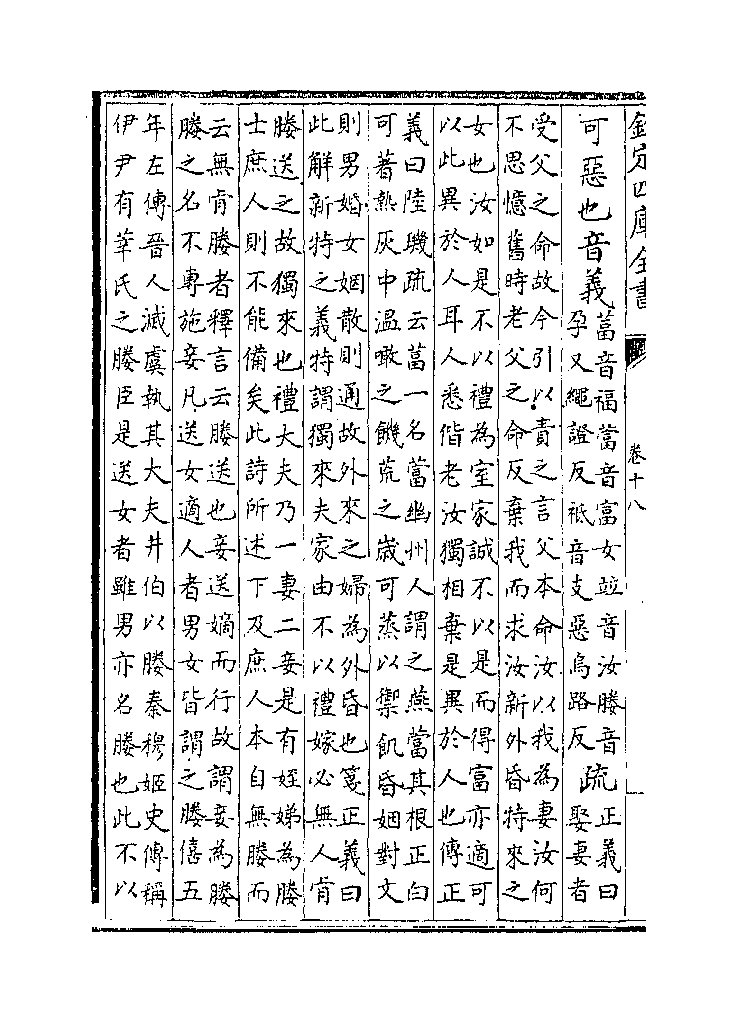 欽定四庫全書
卷十八
可惡也音義
葍音福䔰音富女竝音汝媵音
孕又繩證反祗音支惡烏路反
疏
正義曰
娶妻者
受父之命故今引以責之言父本命汝以我為妻汝何
不思憶舊時老父之命反棄我而求汝新外昏特來之
女也汝如是不以禮為室家誠不以是而得富亦適可
以此異於人耳人悉偕老汝獨相棄是異於人也傳正
義曰陸璣疏云葍一名䔰幽州人謂之燕䔰其根正白
可著熱灰中温噉之饑荒之歲可蒸以禦飢昏姻對文
則男婚女姻散則通故外來之婦為外昏也箋正義曰
此解新特之義特謂獨來夫家由不以禮嫁必無人肯
媵送之故獨來也禮大夫乃一妻二妾是有姪娣為媵
士庶人則不能備矣此詩所述下及庶人本自無媵而
云無肯媵者釋言云媵送也妾送嫡而行故謂妾為媵
媵之名不專施妾凡送女適人者男女皆謂之媵僖五
年左傳晉人滅虞執其大夫井伯以媵秦穆姬史傳稱
伊尹有莘氏之媵臣是送女者雖男亦名媵也此不以